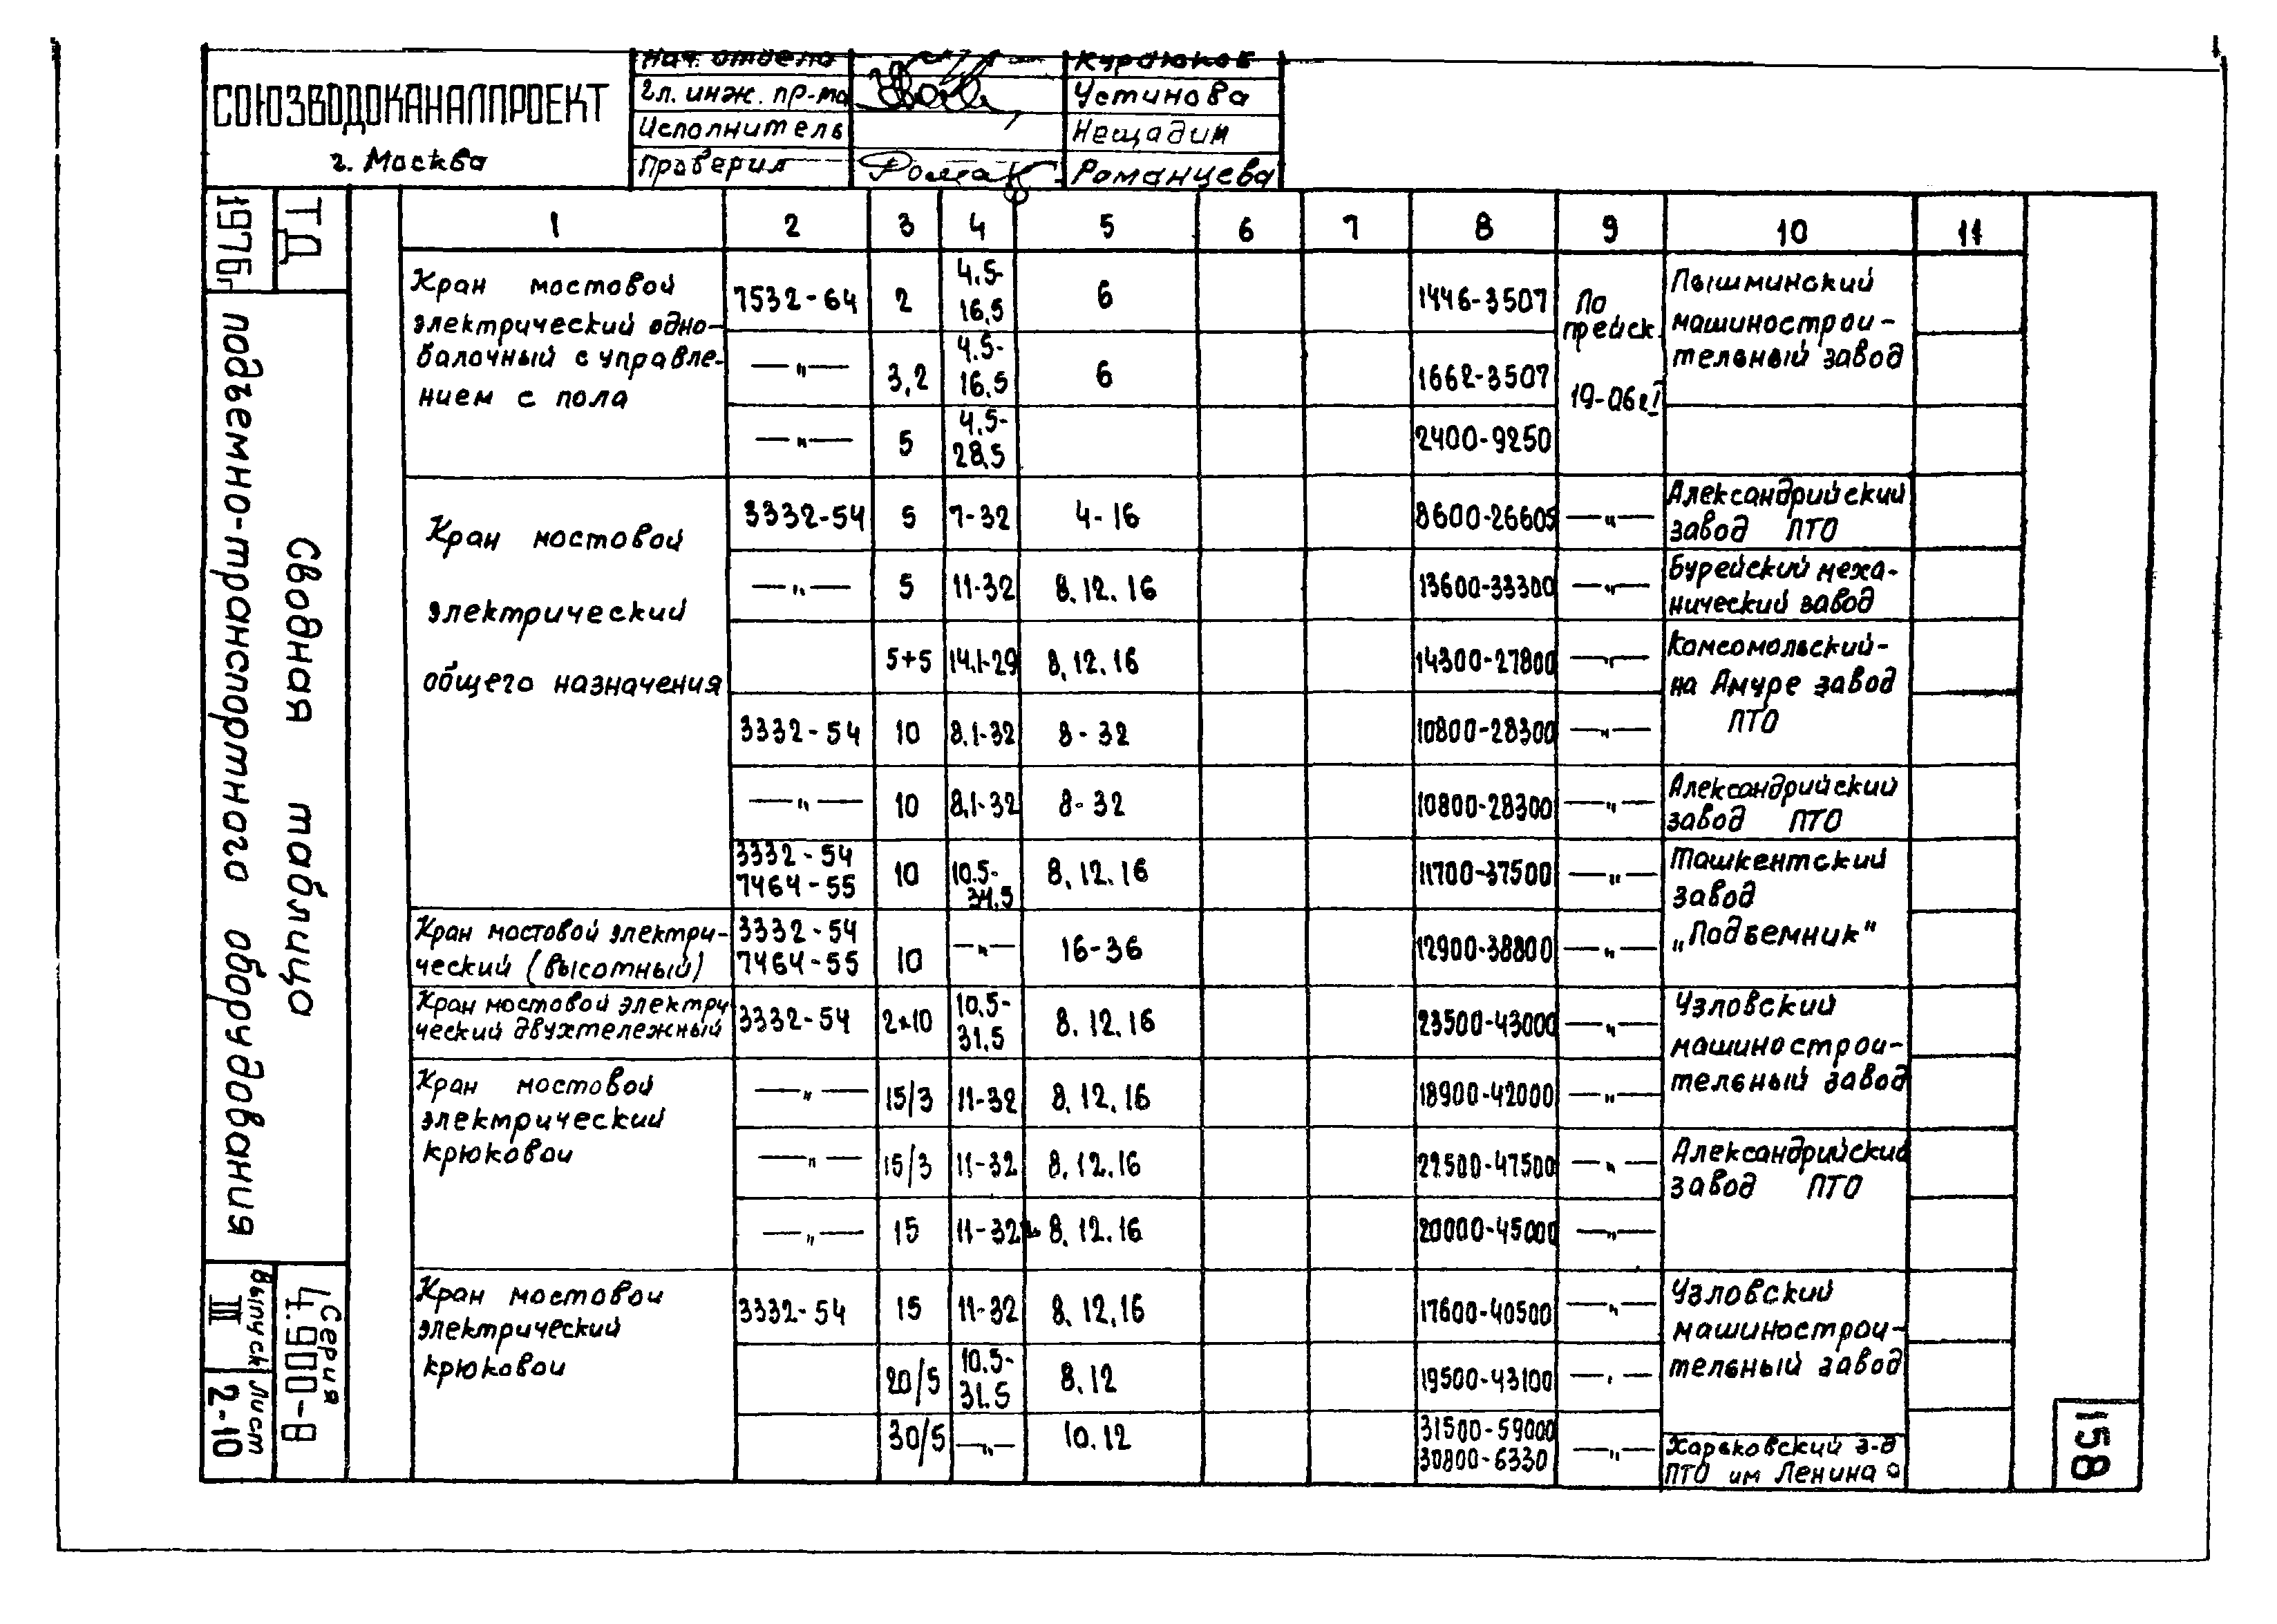 СОЮЗВОДОКАНАЛПРОЕКТ
г. Москва
Нач. отдела Курдюков
Гл. инж. пр-та Устинова
Исполнитель Нещадим
Проверил Романцева
ТД
1976г
Сводная таблица
подъемно-транспортного оборудования
Серия
4.900-8
Выпуск Лист
III 2-10
158
1 2 3 4 5 6 7 8 9 10 11
Кран мостовой электрический одно-
балочный с управле-
нием с пола
7532-64 2 4.5-16.5 6 1446-3507 По прейск. 19-06 Пышминский машинострои-
тельный завод
—"— 3,2 4.5-16.5 6 1662-3507
—"— 5 4.5-28.5 2400-9250
Кран мостовой
электрический
общего назначения
3332-54 5 7-32 4-16 8600-26605 —"— Александрийский завод ПТО
—"— 5 11-32 8.12.16 13600-33300 —"— Бурейский меха-
нический завод
5+5 14.1-29 8.12.16 14300-27800 —"— Комсомольский-
на Амуре завод
ПТО
3332-54 10 8.1-32 8-32 10800-28300 —"—
—"— 10 8.1-32 8-32 10800-28300 —"— Александрийский
завод ПТО
3332-54
7464-55 10 10.5-34.5 8.12.16 11700-37500 —"— Ташкентский
завод
„Подъемник"
Кран мостовой электри-
ческий (высотный)
3332-54
7464-55 10 —"— 16-36 12900-38800 —"—
Кран мостовой электри
ческий двухтележный
3332-54 2x10 10.5-31.5 8.12.16 23500-43000 —"— Узловский
машинострои-
тельный завод
Кран мостовой
электрический
крюковой
—"— 15/3 11-32 8.12.16 18900-42000 —"—
—"— 15/3 11-32 8.12.16 22500-47500 —"— Александрийский
завод ПТО
—"— 15 11-32 8.12.16 20000-45000 —"—
Кран мостовой
электрический
крюковой
3332-54 15 11-32 8.12.16 17600-40500 —"— Узловский
машинострои-
тельный завод
20/5 10.5-31.5 8.12 19500-43100 —"—
30/5 —"— 10.12 31500-59000
30800-6330 —"— Харьковский з-д
ПТО им Ленина